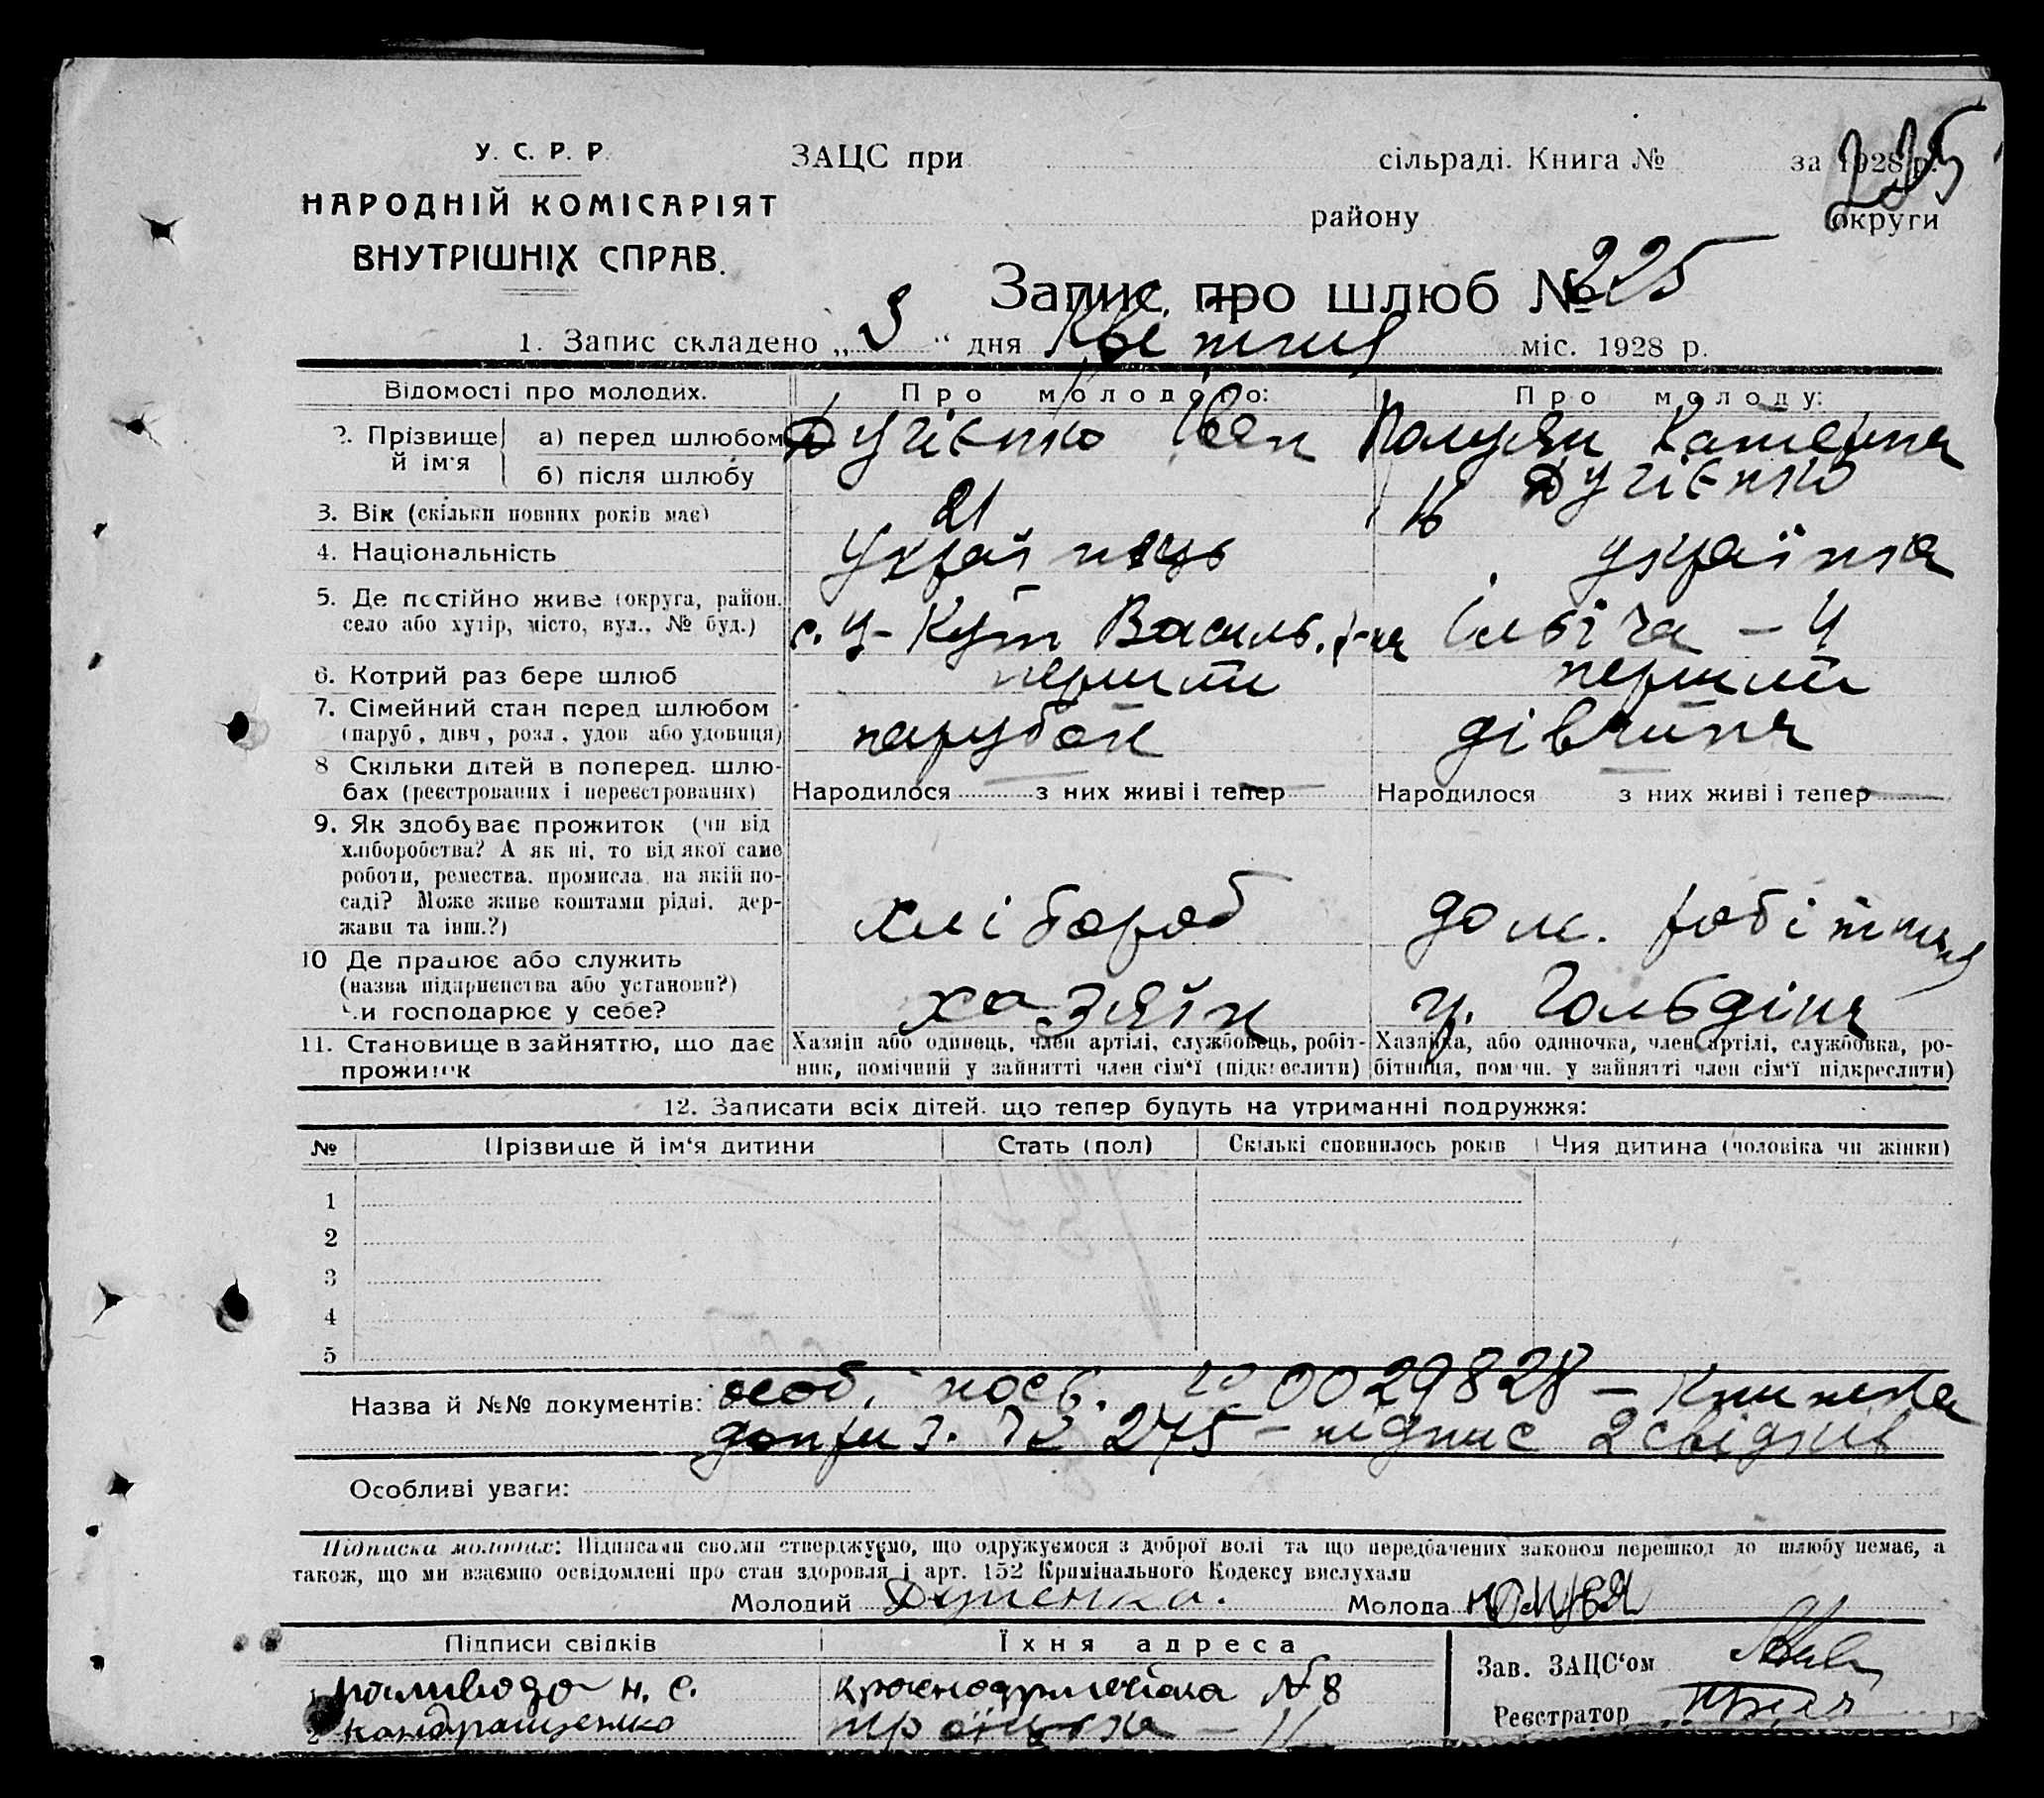 225
У. С. Р. Р.
НАРОДНІЙ КОМІСАРІЯТ
ВНУТРІШНІХ СПРАВ.
ЗАЦС при сільраді. Книга № за 1928 р.
району округи
Запис про шлюб № 225
1. Запис складено „ “ дня Квітня міс. 1928 р.
Відомості про молодих. Про молодого: Про молоду:
2. Прізвище й ім'я
а) перед шлюбом Дугієнко Іван Полуян Катерина
б) після шлюбу Дугієнко
3. Вік (скільки повних років має) 21
4. Національність Українець українка
5. Де постійно живе (округа, район,
село або хутір, місто, вул., № буд.) с. Кут Василь. р-на Ілліча – 4
6. Котрий раз бере шлюб перший перший
7. Сімейний стан перед шлюбом
(паруб., дівч., розл., удов. або удовиця) парубок дівчина
8 Скільки дітей в поперед. шлю-
бах (реєстрованих і нереєстрованих) Народилося — з них живі і тепер — Народилося — з них живі і тепер —
9. Як здобуває прожиток (чи від
хліборобства? А як ні, то від якої саме
роботи, ремества, промисла, на якій по-
саді? Може живе коштами рідні, дер-
жави та інш.?) хлібороб дом. робітниця
10 Де працює або служить
(назва підприємства або установи?)
Чи господарює у себе? хазяїн у. Гольдіна
11. Становище в зайняттю, що дає
прожиток
Хазяїн або одинець, член артілі, службовець, робіт-
ник, помічний у зайнятті член сім'ї (підкреслити)
Хазяйка, або одиночка, член артілі, службовка, ро-
бітниця, помічн. у зайнятті член сім'ї підкреслити)
12. Записати всіх дітей, що тепер будуть на утриманні подружжя:
№ Прізвище й ім'я дитини Стать (пол) Скількі сповнилось років Чия дитина (чоловіка чи жінки)
1
2
3
4
5
Назва й №№ документів: особ. посв. № 0029828 – Книжка
доприз. № 275 – підпис 2 свідків
Особливі уваги:
Підписка молодих: Підписами своїми стверджуємо, що одружуємося з доброї волі та що передбачених законом перешкод до шлюбу немає, а
також, що ми взаємно освідомлені про стан здоровля і арт. 152 Кримінального Кодексу вислухали
Молодий Дугіенко. Молода
Підписи свідків Їхня адреса
1 Паливода Н. С. Красноармейська №8
2 Кондращенко Троїцька – 11
Зав. ЗАЦС'ом
Реєстратор